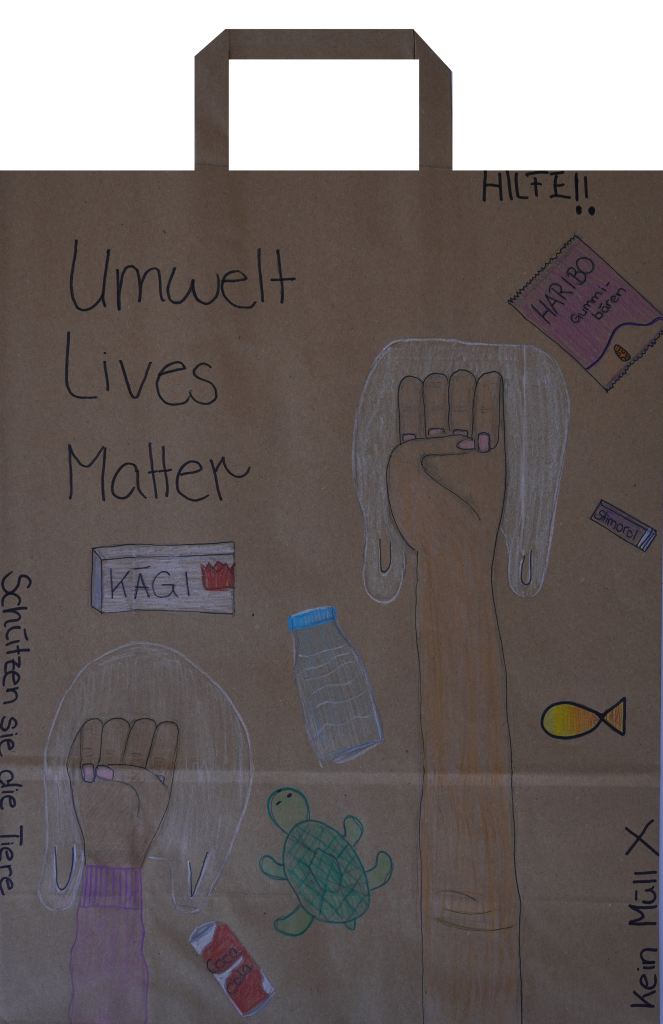 HILFE!!
Umwelt
Lives
Matter
HARIBO
Gummi-
bären
Stimorol
KÄGI
Schützen sie die Tiere
Coca
cola
Kein Müll X